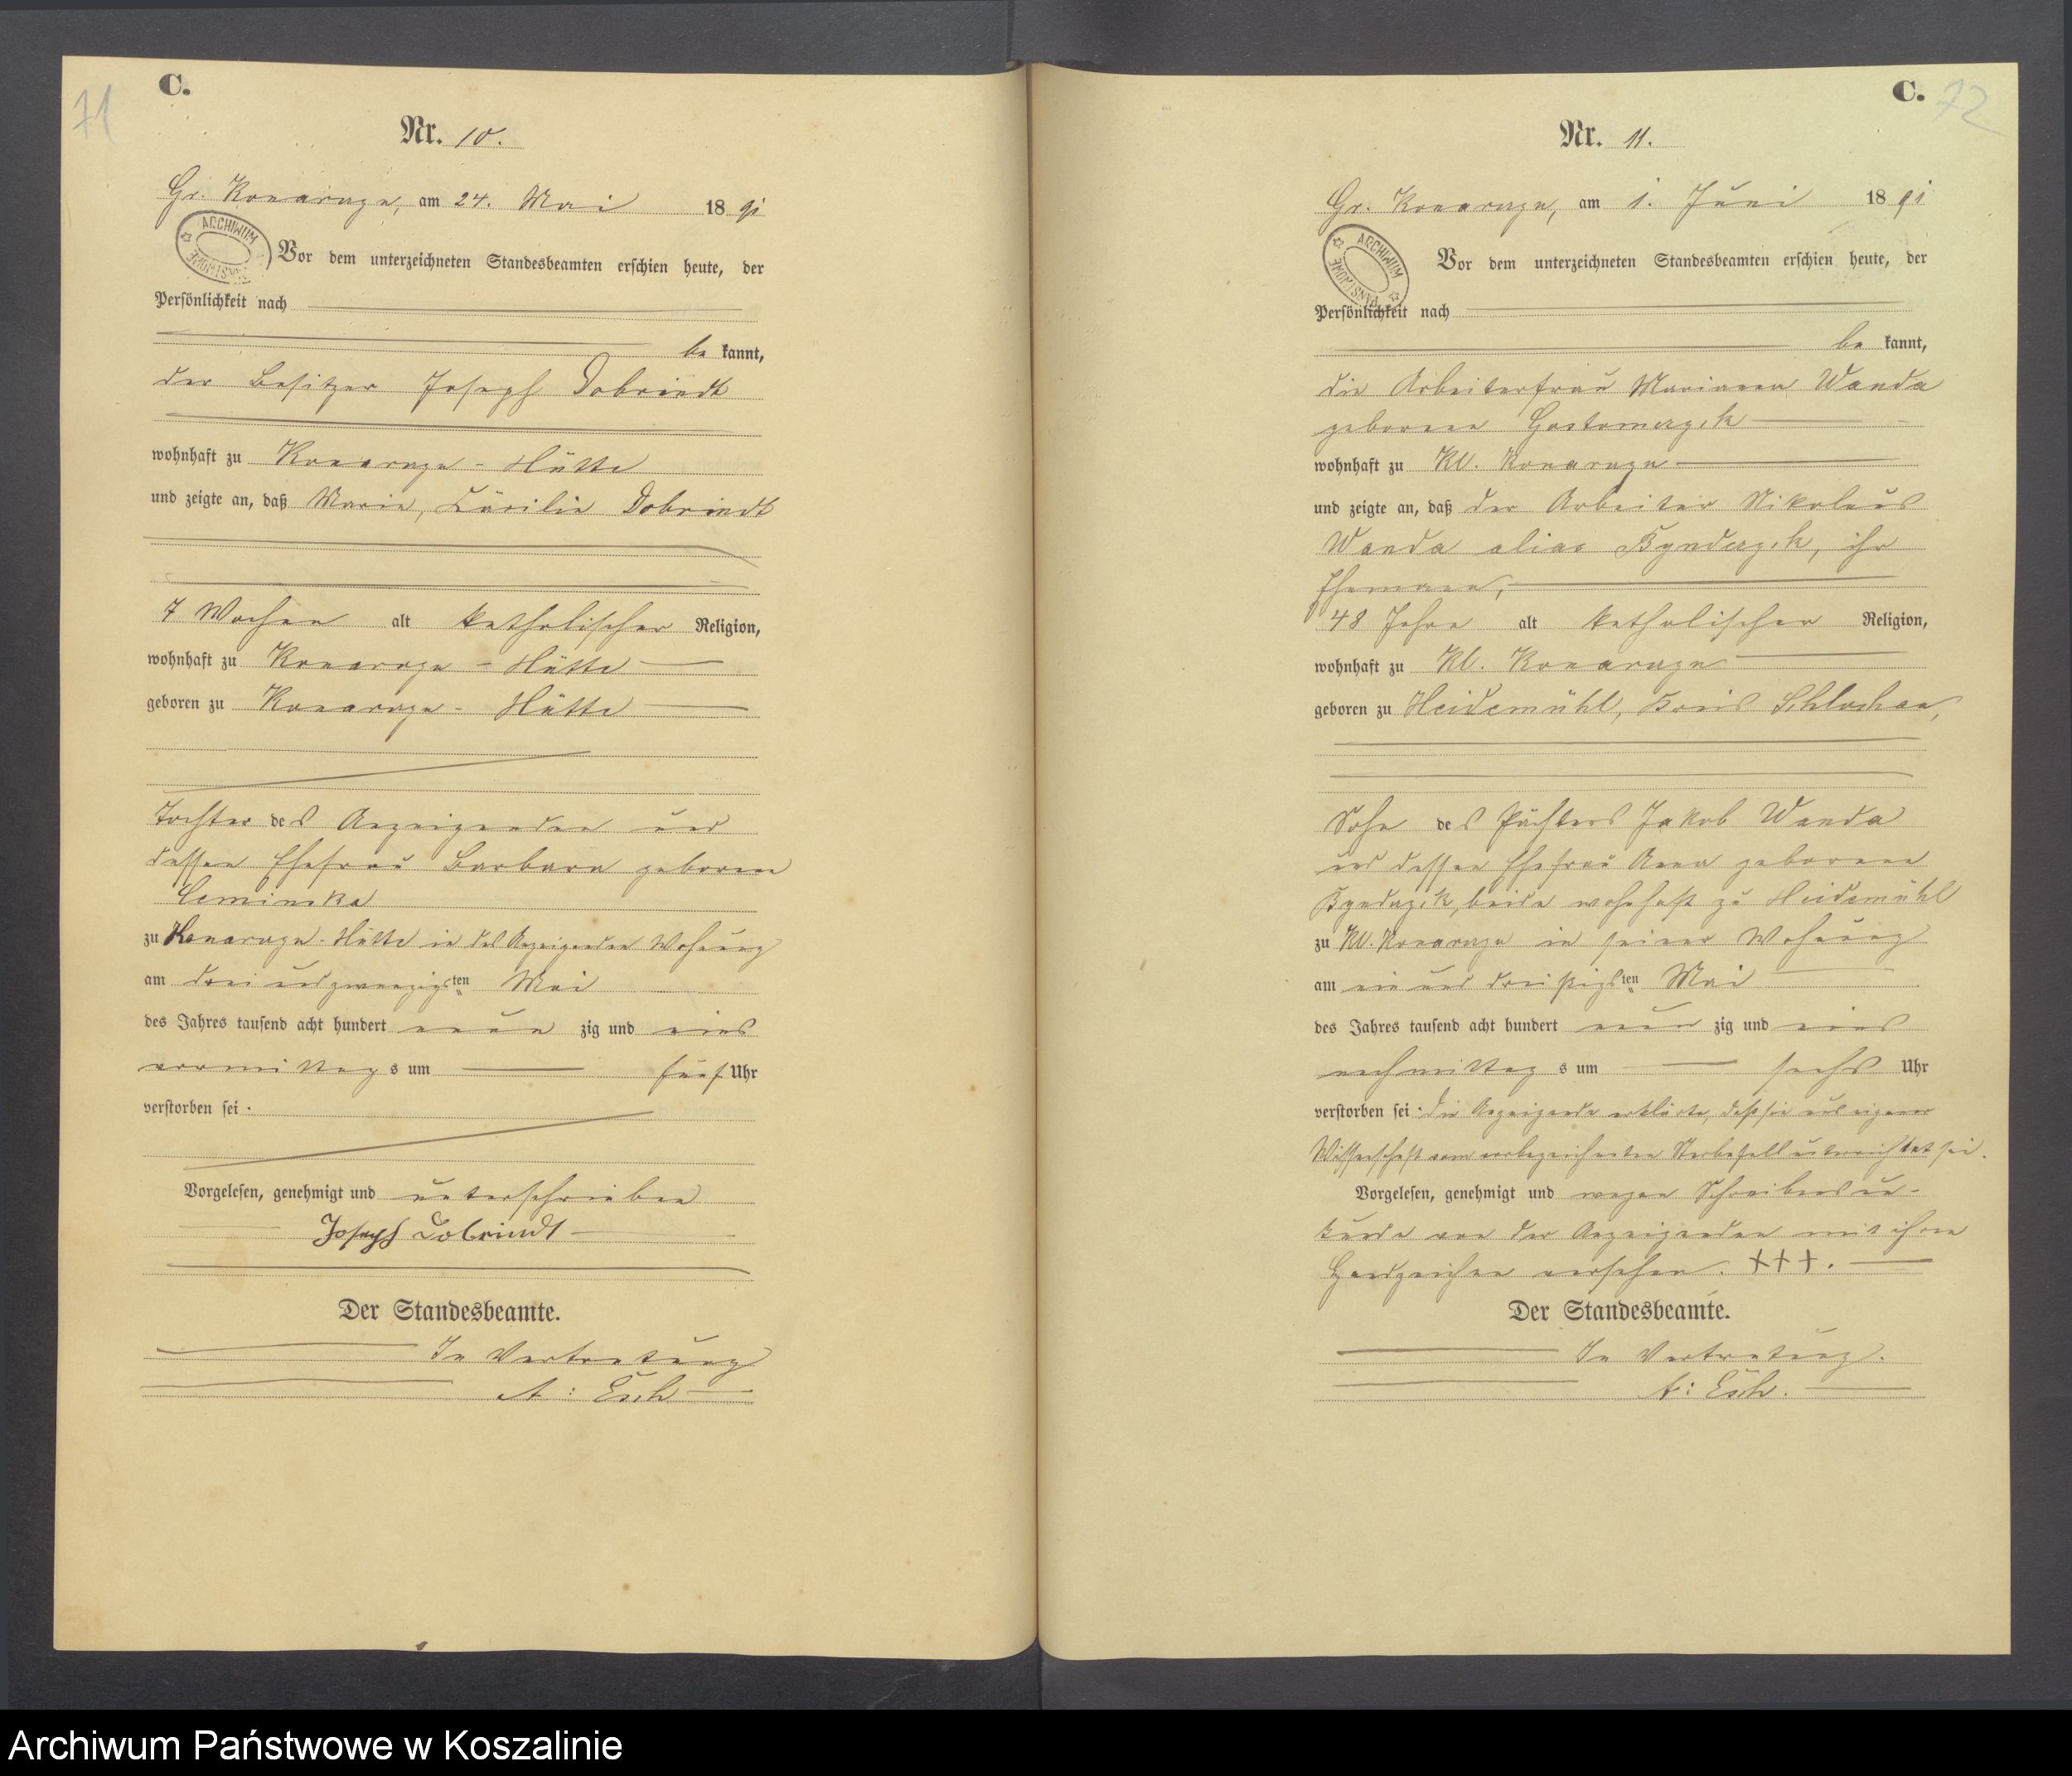 71
C.
Nr. 10.
Gr. Konarzyn, am 24. Mai 1891
ARCHIWUM PAŃSTWOWE
Vor dem unterzeichneten Standesbeamten erschien heute, der
Persönlichkeit nach
be kannt,
der Besitzer Joseph Dobrindt
wohnhaft zu Konarzyn-Hütte
und zeigte an, daß Marie, Cäcilie Dobrindt
7 Wochen alt katholischer Religion,
wohnhaft zu Konarzyn-Hütte
geboren zu Konarzyn-Hütte
Tochter des Anzeigenden und
dessen Ehefrau Barbara geborene
zu Konarzyn-Hütte in des Anzeigenden Wohnung
am drei und zwanzigsten Mai
des Jahres tausend acht hundert neun zig und eins
vormittags um fünf Uhr
verstorben sei.
Vorgelesen, genehmigt und unterschrieben
Joseph Dobrindt
Der Standesbeamte.
In Vertretung
A: Esch
72
C.
Nr. 11.
Gr. Konarzyn, am 1. Juni 1891
ARCHIWUM PAŃSTWOWE
Vor dem unterzeichneten Standesbeamten erschien heute, der
Persönlichkeit nach
be kannt,
die Arbeiterfrau Marianna Wanda
geborene Gostomczyk
wohnhaft zu Kl. Konarzyn
und zeigte an, daß der Arbeiter Nikolaus
Wanda alias ihr
Ehemann,
48 Jahre alt katholischer Religion,
wohnhaft zu Kl. Konarzyn
geboren zu Heidemühl, Kreis Schlochau,
Sohn des Pächters Jakob Wanda
und dessen Ehefrau Anna geborene
beide wohnhaft zu Heidemühl
zu Kl. Konarzyn in seiner Wohnung
am ein und dreißigsten Mai
des Jahres tausend acht hundert neun zig und eins
nachmittags um sechs Uhr
verstorben sei. Die Anzeigende erklärte, daß sie aus eigener
Wissenschaft vom vorbezeichneten Sterbefall unterrichtet sei.
Vorgelesen, genehmigt und wegen Schreibensun-
kunde von der Anzeigenden mit ihrem
Handzeichen versehen. +++.
Der Standesbeamte.
In Vertretung.
A: Esch.
Archiwum Państwowe w Koszalinie